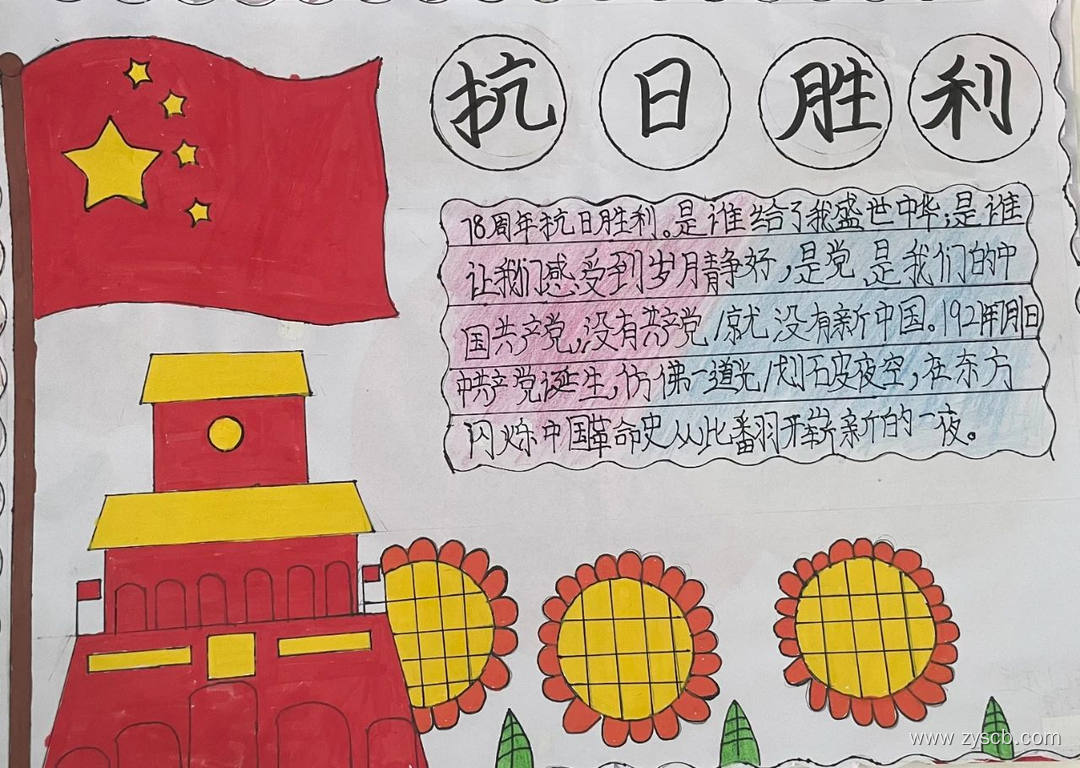 抗日胜利
78周年抗日胜利。是谁给了我盛世中华；是谁
让我们感受到岁月静好，是党 是我们的中
国共产党，没有共产党 就没有新中国。1921年7月1日
中共产党诞生，仿佛一道光 划破夜空，在东方
闪烁中国革命史从此翻开崭新的一夜。
www.zyscb.com